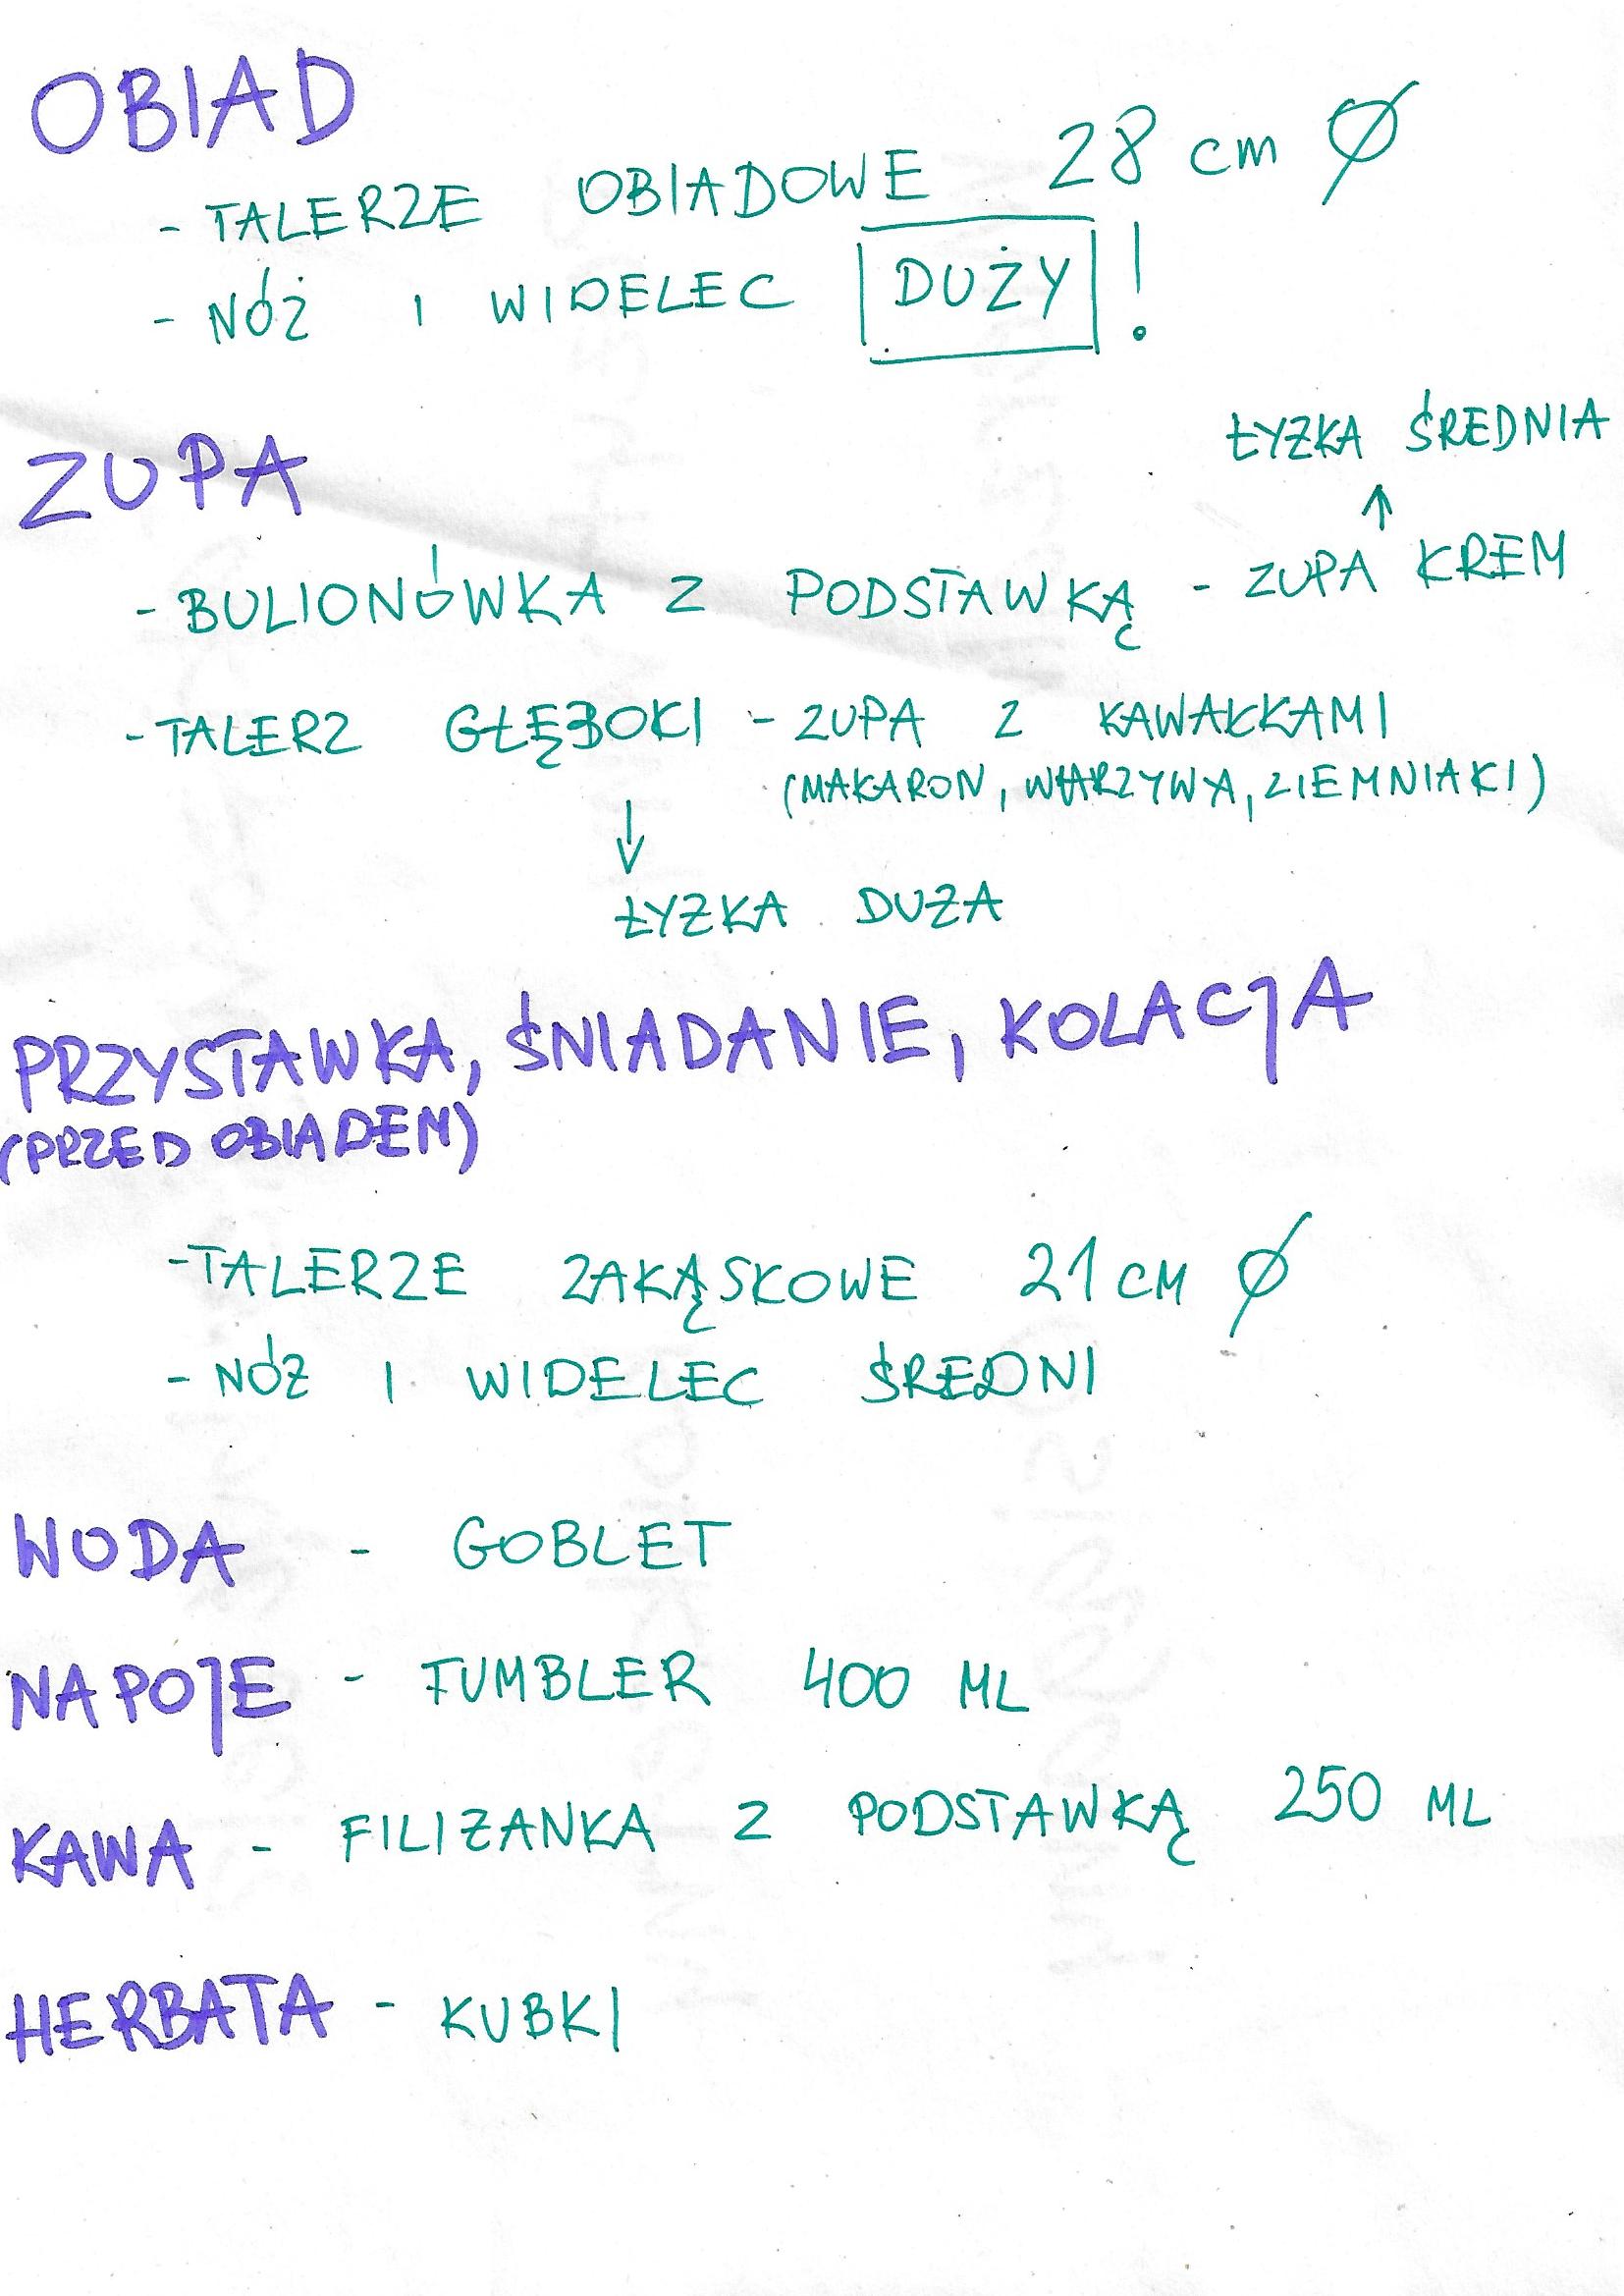 OBIAD
- TALERZE OBIADOWE 28 cm Ø
- NÓŻ I WIDELEC DUŻY !
ZUPA
ŁYŻKA ŚREDNIA
↑
- BULIONÓWKA Z PODSTAWKĄ - ZUPA KREM
- TALERZ GŁĘBOKI - ZUPA Z KAWAŁKAMI
(MAKARON, WARZYWA, ZIEMNIAKI)
↓
ŁYŻKA DUŻA
PRZYSTAWKA, ŚNIADANIE, KOLACJA
(PRZED OBIADEM)
- TALERZE ZAKĄSKOWE 21 CM Ø
- NÓŻ I WIDELEC ŚREDNI
WODA - GOBLET
NAPOJE - TUMBLER 400 ML
KAWA - FILIŻANKA Z PODSTAWKĄ 250 ML
HERBATA - KUBKI